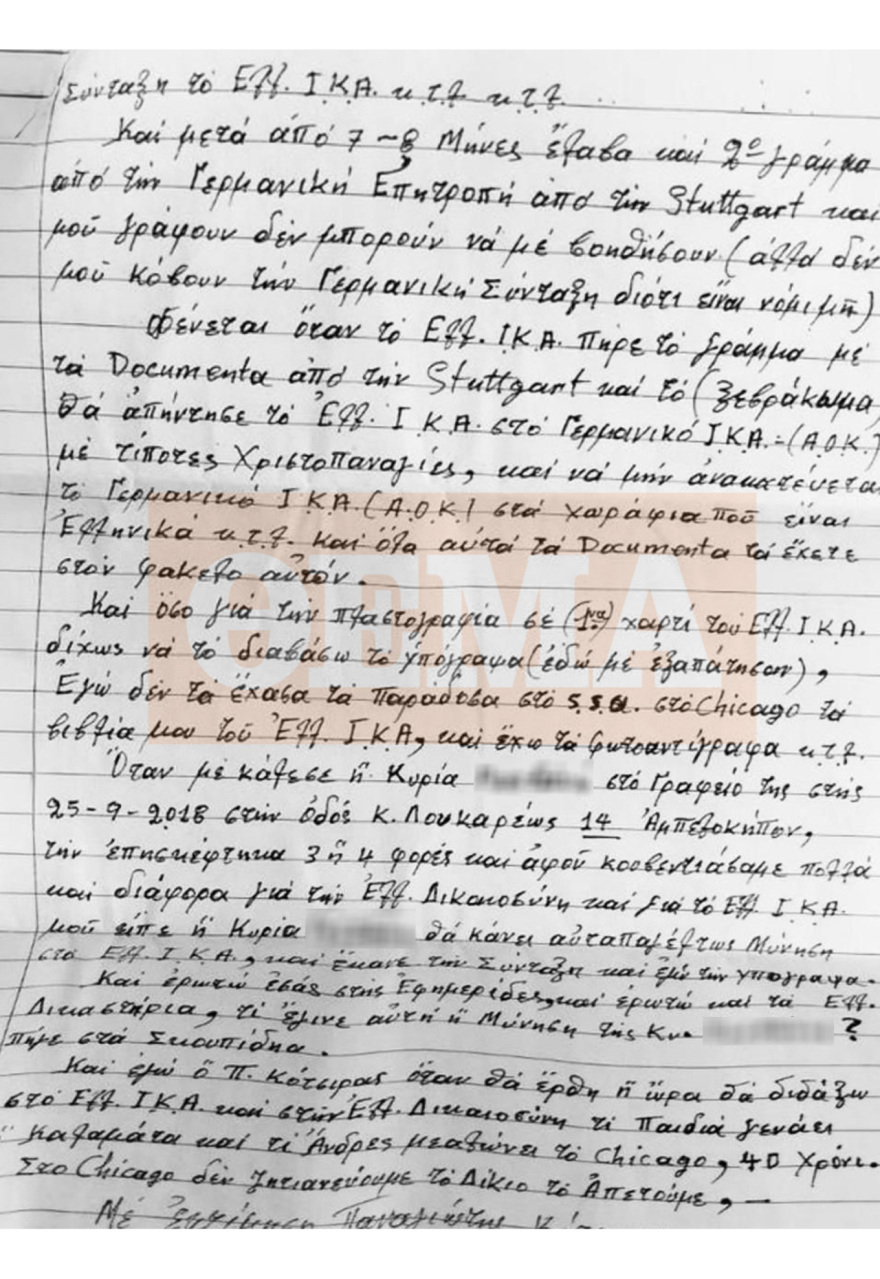 Σύνταξη τό Ελλ. Ι.Κ.Α. κ.τ.λ. κ.τ.λ.
Καί μετά από 7-8 Μήνες έλαβα καί 2º γράμμα
από τήν Γερμανική Επητροπή από τήν Stuttgart καί
μού γράφουν δέν μπορούν νά μέ βοηθήσουν (αλλά δέν
μού κόβουν τήν Γερμανική Σύνταξη διότι είναι νόμιμη)
Φένεται όταν τό Ελλ. Ι.Κ.Α. πήρε τό γράμμα μέ
τά Documenta από τήν Stuttgart καί τό (ξεβράκωμα,
θά απήντησε τό Ελλ. Ι.Κ.Α. στό Γερμανικό Ι.Κ.Α.=(A.O.K.)
μέ τίποτες Χριστοπαναγίες, καί νά μήν ανακατέυεται
τό Γερμανικό Ι.Κ.Α. (A.O.K) στά χωράφια πού είναι
Ελληνικά κ.τ.λ. καί όλα αυτά τά Documenta τά έχετε
στόν φάκελο αυτόν.
Καί όσο γιά τήν πλαστογραφία σέ (1να) χαρτί τού Ελλ. Ι.Κ.Α.
δίχως νά τό διαβάσω τό υπόγραψα (εδώ μέ εξαπάτησαν),
Εγώ δέν τά έχασα τά παράδοσα στό s.s.a. στό Chicago τά
βιβλία μου τού Ελλ. Ι.Κ.Α, καί έχω τά φωτοαντίγραφα κ.τ.λ.
Όταν μέ κάλεσε ή Κυρία στό Γραφείο της στής
25-9-2018 στήν όδός Κ. Λουκαρέως 14 Αμπελοκήπον,
τήν έπησκέφτηκα 3 ή 4 φορές καί άφού κουβεντιάσαμε πολλά
καί διάφορα γιά τήν Ελλ. Δικαιοσύνη καί γιά τό Ελλ Ι.Κ.Α.
μού είπε ή Κυρία θά κάνει αυταπαγέλτως Μύνηση
στό Ελλ. Ι.Κ.Α., καί έκανε τήν Σύνταξη καί εγώ τήν υπόγραψα.
Καί έρωτώ εσάς στής Εφημερίδες, καί έρωτώ καί τά Ελλ.
Δικαστήρια, τί έγινε αυτή ή Μύνηση τής Κυ. ?
πήγε στά Σκουπίδηα.
Καί εγώ ό Π. Κότσιρας όταν θά έρθη ή ώρα θά διδάξω
στό Ελλ. Ι.Κ.Α. καί στήν Ελλ. Δικαιοσύνη τί Παιδιά γενάει
ή Καλαμάτα καί τί Άνδρες μεγαλώνει τό Chicago, 40 Χρόνι.
Στο Chicago δέν ζητιανεύουμε τό Δίκιο τό Απετούμε, —
Μέ Εκτίμηση Παναγιώτης
ΘΕΜΑ